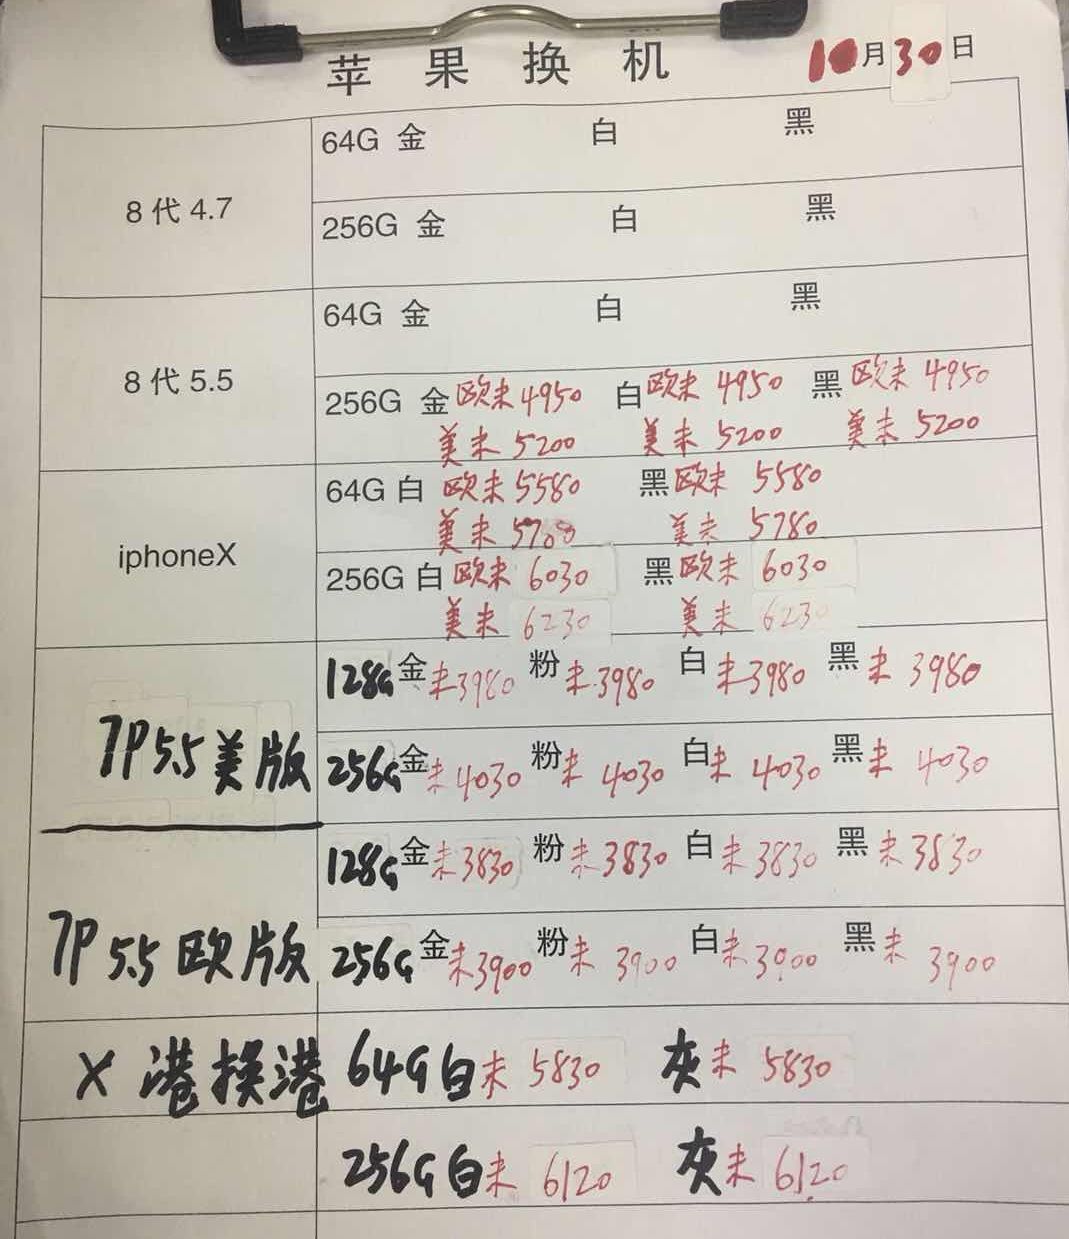 苹果换机 10月30日
8代4.7
64G 金 白 黑
256G 金 白 黑
8代5.5
64G 金 白 黑
256G 金欧未4950 白欧未4950 黑欧未4950
美未5200 美未5200 美未5200
iphoneX
64G 白 欧未5580 黑欧未5580
美未5780 美未5780
256G 白欧未6030 黑欧未6030
美未6230 美未6230
7P5.5美版
128G金未3980 粉未3980 白未3980 黑未3980
256G金未4030 粉未4030 白未4030 黑未4030
7P5.5欧版
128G金未3830 粉未3830 白未3830 黑未3830
256G金未3900 粉未3900 白未3900 黑未3900
X港换港 64G白未5830 灰未5830
256G白未6120 灰未6120